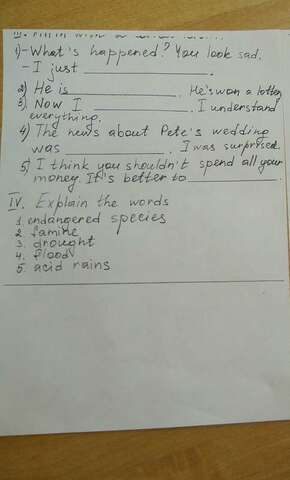 III. Fill in with a
1) - What's happened? You look sad.
- I just ____________.
2) He is ____________. He's won a lottery
3) Now I ____________. I understand
everything.
4) The news about Pete's wedding
was ____________. I was surprised.
5) I think you shouldn't spend all your
money. It's better to ____________.
IV. Explain the words
1. endangered species
2. famine
3. drought
4. flood
5. acid rains